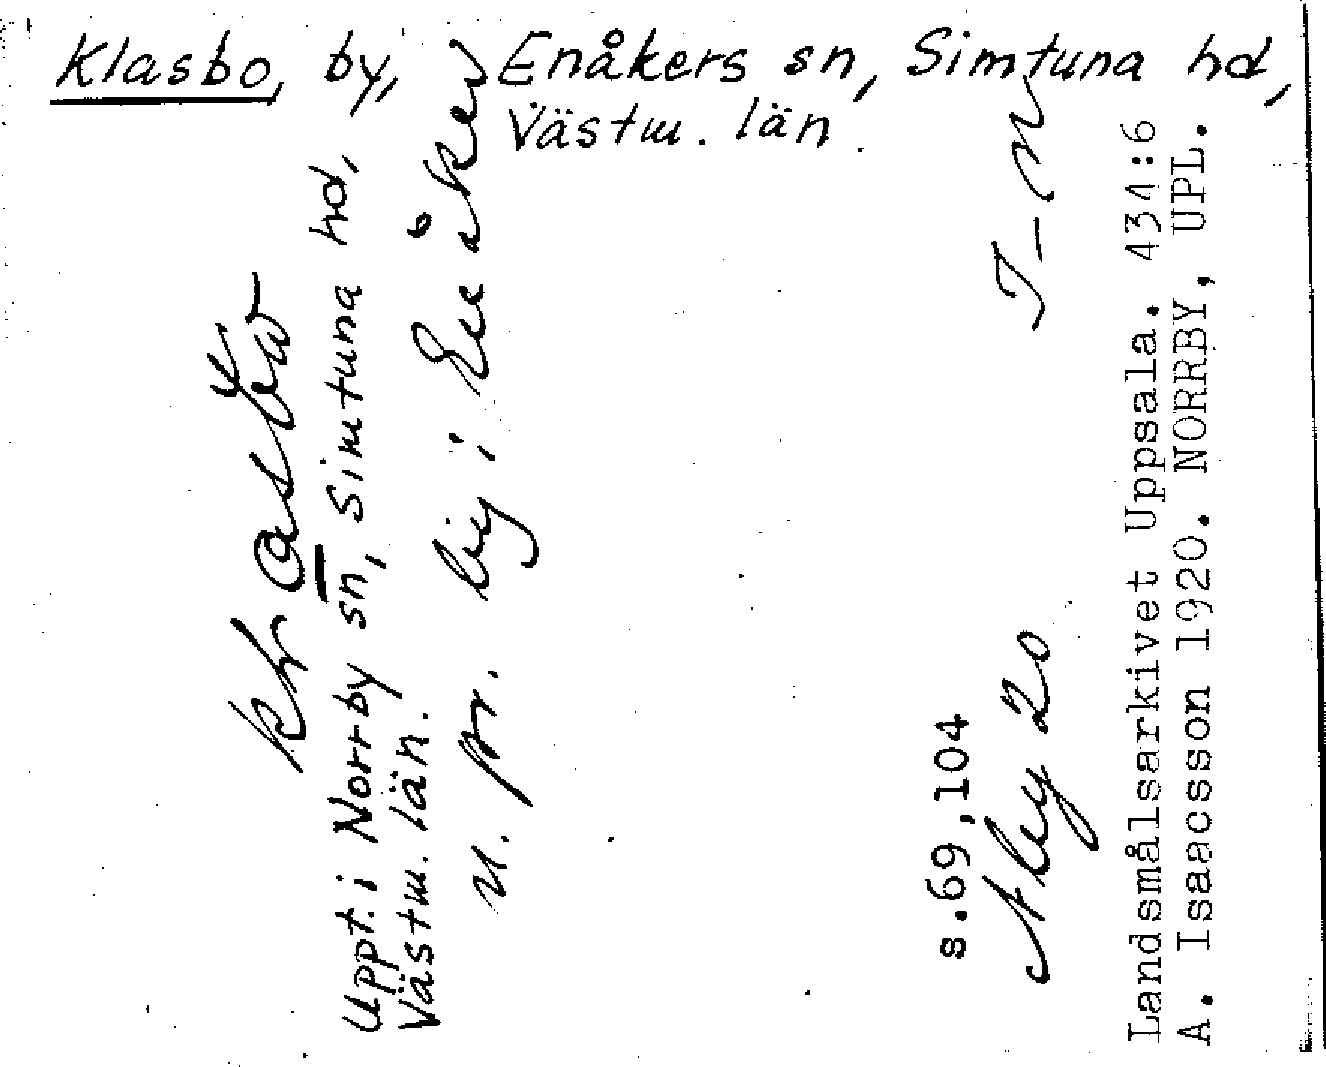 Klasbo, by, Enåkers sn, Simtuna hd,
Västm. län.
Uppt. i Norrby sn, Simtuna hd,
Västm. län.
n. pr. by i Enåker
s.69,104
Aby 20
T-N
Landsmålsarkivet Uppsala. 434:6
A. Isaacsson 1920. NORRBY, UPL.